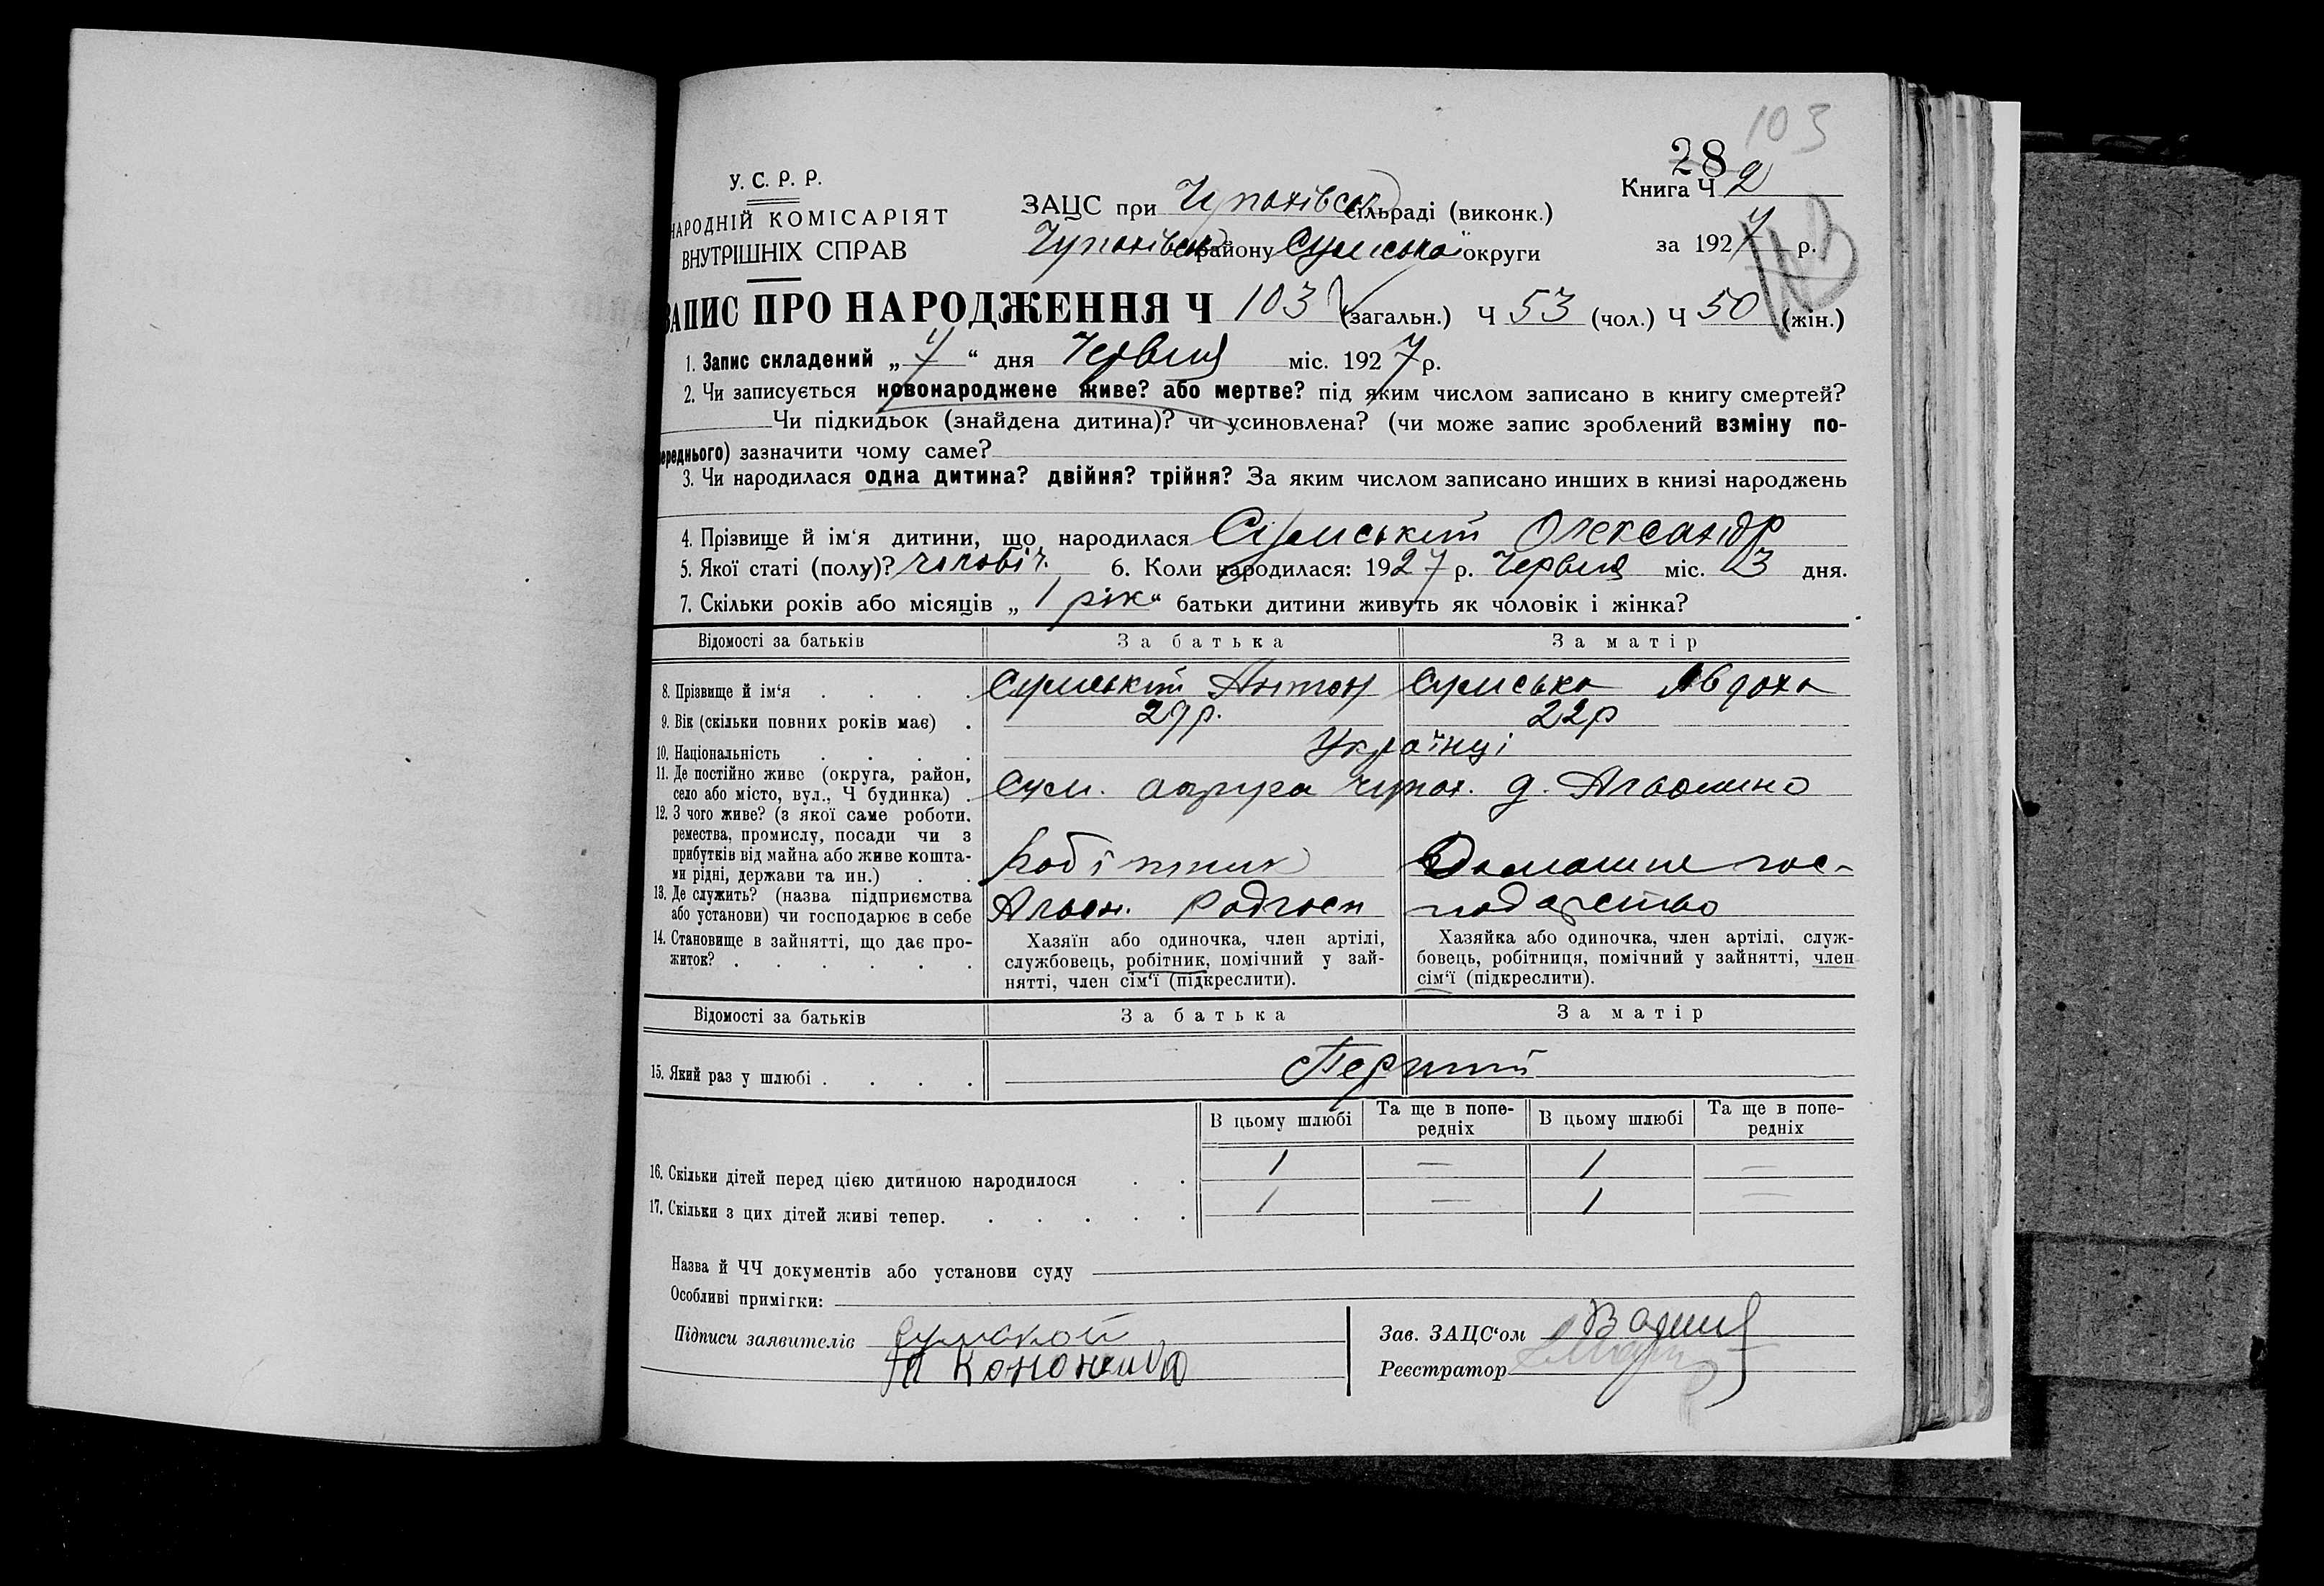 103
28
У. С. Р. Р.
НАРОДНІЙ КОМІСАРІЯТ
ВНУТРІШНІХ СПРАВ
ЗАЦС при Чупахівськ сільраді (виконк.)
Чупахівськ району Сумської округи
Книга Ч 2
за 1927 р.
ЗАПИС ПРО НАРОДЖЕННЯ Ч 103 (загальн.) Ч 53 (чол.) Ч 50 (жін.)
1. Запис складений „7“ дня Червня міс. 1927 р.
2. Чи записується новонароджене живе? або мертве? під яким числом записано в книгу смертей?
Чи підкидьок (знайдена дитина)? чи усиновлена? (чи може запис зроблений взміну по-
переднього) зазначити чому саме?
3. Чи народилася одна дитина? двійня? трійня? За яким числом записано инших в книзі народжень
4. Прізвище й ім‘я дитини, що народилася Сумський Олександр
5. Якої статі (полу)? чоловіч. 6. Коли народилася: 1927 р. Червня міс. 3 дня.
7. Скільки років або місяців „1 рік“ батьки дитини живуть як чоловік і жінка?
Відомості за батьків За батька За матір
8. Прізвище й ім‘я . . . . Сумський Антон Сумська Явдоха
9. Вік (скільки повних років має) . 29р. 22р
10. Національність . . . . Українці
11. Де постійно живе (округа, район,
село або місто, вул., Ч будинка) . Сум. округа Чупах. д. Альошино
12. З чого живе? (з якої саме роботи,
ремества, промислу, посади чи з
прибутків від майна або живе кошта-
ми рідні, держави та ин.) . . Робітник Домашне гос-
13. Де служить? (назва підприємства
або установи) чи господарює в себе Альош. Радгосп подарство
14. Становище в зайнятті, що дає про-
житок? . . . . . .
Хазяїн або одиночка, член артілі,
службовець, робітник, помічний у зай-
нятті, член сім‘ї (підкреслити).
Хазяйка або одиночка, член артілі, служ-
бовець, робітниця, помічний у зайнятті, член
сім‘ї (підкреслити).
Відомості за батьків За батька За матір
15. Який раз у шлюбі . . . . Перший
В цьому шлюбі Та ще в попе-
редніх В цьому шлюбі Та ще в попе-
редніх
16. Скільки дітей перед цією дитиною народилося . . 1 — 1 —
17. Скільки з цих дітей живі тепер. . . . . . 1 — 1 —
Назва й ЧЧ документів або установи суду
Особливі примігки:
Підписи заявителів Сумской
Кононенко
Зав. ЗАЦС‘ом
Реєстратор